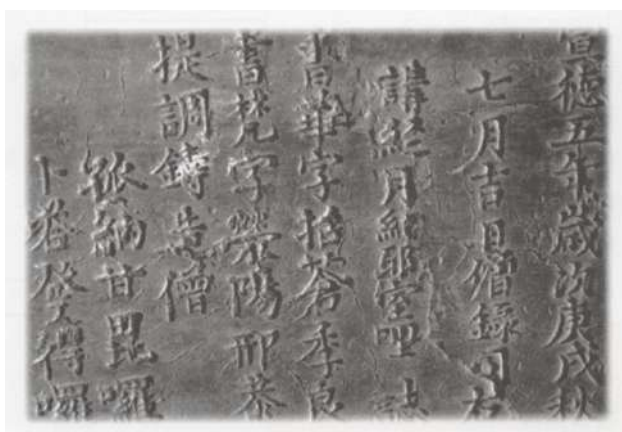 宣德五年歲次庚戌秋
七月吉日僧錄司右
講經月納耶室哩
書華字括蒼季良
書梵字滎陽邢恭
提調鑄造僧
孤納甘毘囉
卜答癹得囉